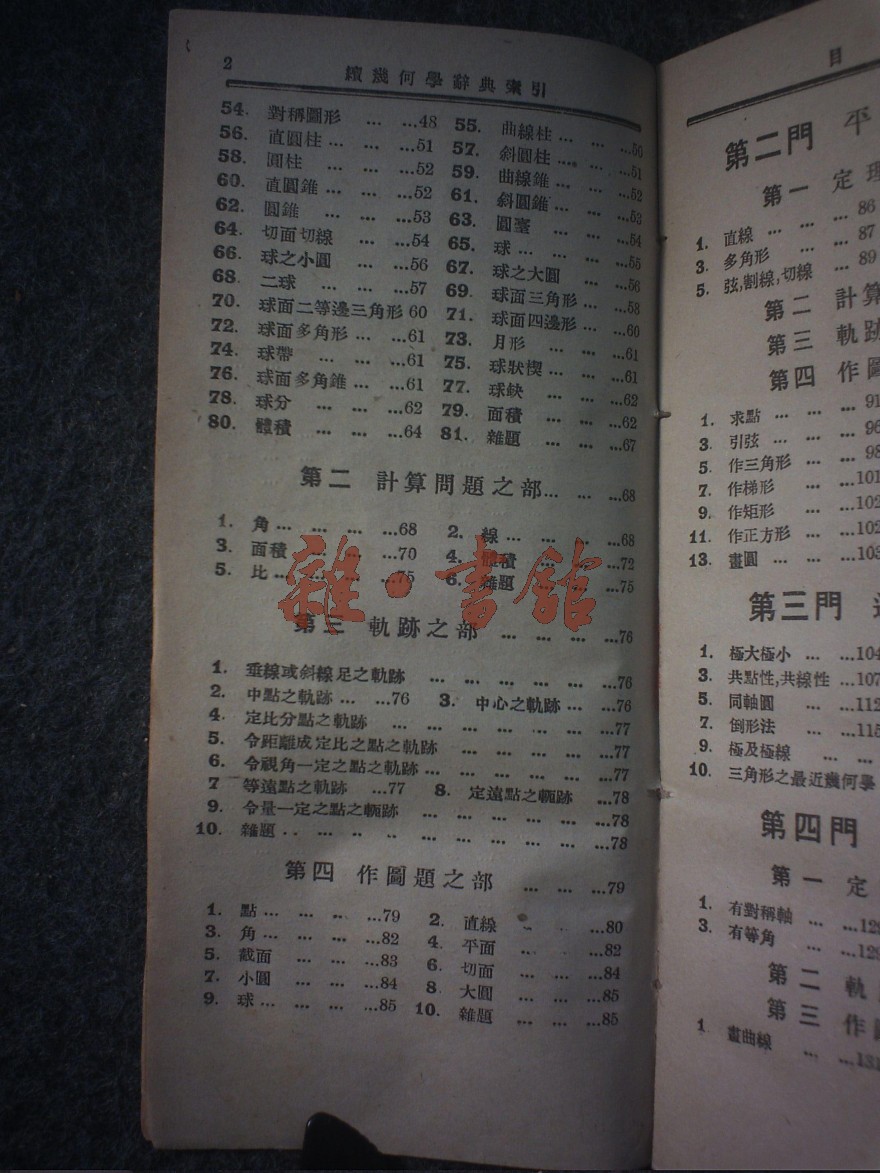 2
續幾何學辭典索引
54. 對稱圖形 … …48 55. 曲線柱… … …50
56. 直圓柱… … …51 57. 斜圓柱… … …51
58. 圓柱 … … …52 59. 曲線錐… … …52
60. 直圓錐… … …52 61. 斜圓錐… … …53
62. 圓錐 … … …53 63. 圓臺 … … …54
64. 切面切線 … …54 65. 球… … … …55
66. 球之小圓 … …56 67. 球之大圓 … …56
68. 二球 … … …57 69. 球面三角形… …58
70. 球面二等邊三角形 60 71. 球面四邊形… …60
72. 球面多角形… …61 73. 月形 … … …61
74. 球帶 … … …61 75. 球狀楔… … …61
76. 球面多角錐… …61 77. 球缺 … … …62
78. 球分 … … …62 79. 面積 … … …62
80. 體積 … … …64 81. 雜題 … … …67
第二 計算問題之部… … …68
1. 角… … … …68 2. 線… … … …68
3. 面積 … … …70 4. 體積 … … …72
5. 比… … … …75 6. 雜題 … … …75
雜·書館
第三 軌跡之部 … … … …76
1. 垂線或斜線足之軌跡 … … … … … …76
2. 中點之軌跡… …76 3. 中心之軌跡… …76
4. 定比分點之軌跡 … … … … … …77
5. 令距離成定比之點之軌跡 … … … …77
6. 令視角一定之點之軌跡… … … … …77
7 等遠點之軌跡 …77 8. 定遠點之軌跡 …78
9. 令量一定之點之軌跡 … … … … …78
10. 雜題‥ … … … … … … …78
第四 作圖題之部 … … …79
1. 點… … … …79 2. 直線 … … …80
3. 角… … … …82 4. 平面 … … …82
5. 截面 … … …83 6. 切面 … … …84
7. 小圓 … … …84 8. 大圓 … … …85
9. 球… … … …85 10. 雜題 … … …85
目
第二門 平
第一 定理
1. 直線 … … … 86
3. 多角形 … … 87
5. 弦,割線,切線 … 89
第二 計算
第三 軌跡
第四 作圖
1. 求點 … … … 91
3. 引弦 … … … 96
5. 作三角形 … … 98
7. 作梯形 … …101
9. 作矩形 … …102
11. 作正方形 … …102
13. 畫圓 … … …103
第三門
1. 極大極小 … …104
3. 共點性,共線性 …107
5. 同軸圓 … …112
7. 倒形法 … …115
9. 極及極線 … …
10. 三角形之最近幾何學
第四門
第一 定
1. 有對稱軸 … …129
3. 有等角 … …129
第二 軌
第三 作圖
1 畫曲線 … …131